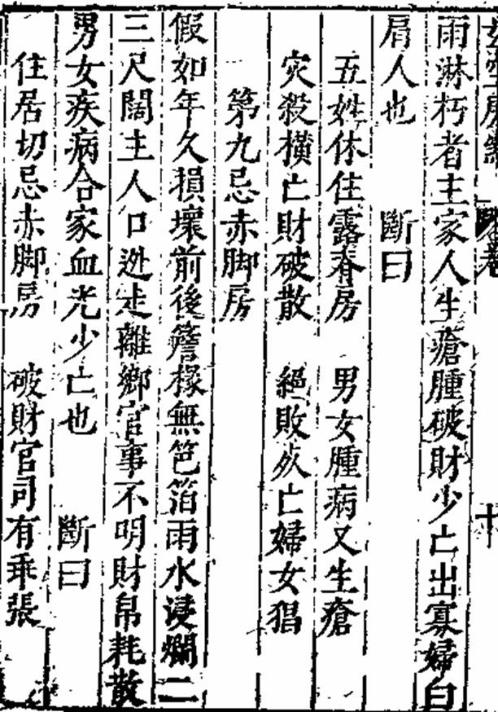 十
雨淋朽者主家人生瘡腫破財少亡出寡婦白
屑人也　斷曰
五姓休住露脊房　男女腫病又生瘡
灾殺橫亡財破散　絕敗夭亡婦女猖
第九忌赤脚房
假如年久損壞前後簷椽無笆箔雨水浸爛二
三尺闊主人口迯走離鄉官事不明財帛耗散
男女疾病合家血光少亡也　斷曰
住居切忌赤脚房　破財官司有乖張